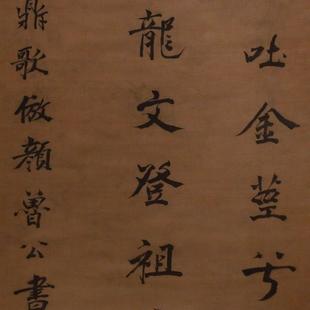 吐金莖兮
龍文登祖
鼎歌倣顏魯公書